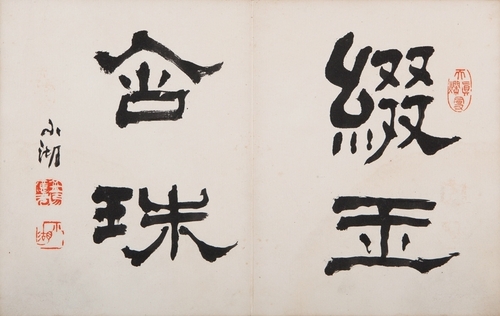 綴玉
含珠
湖